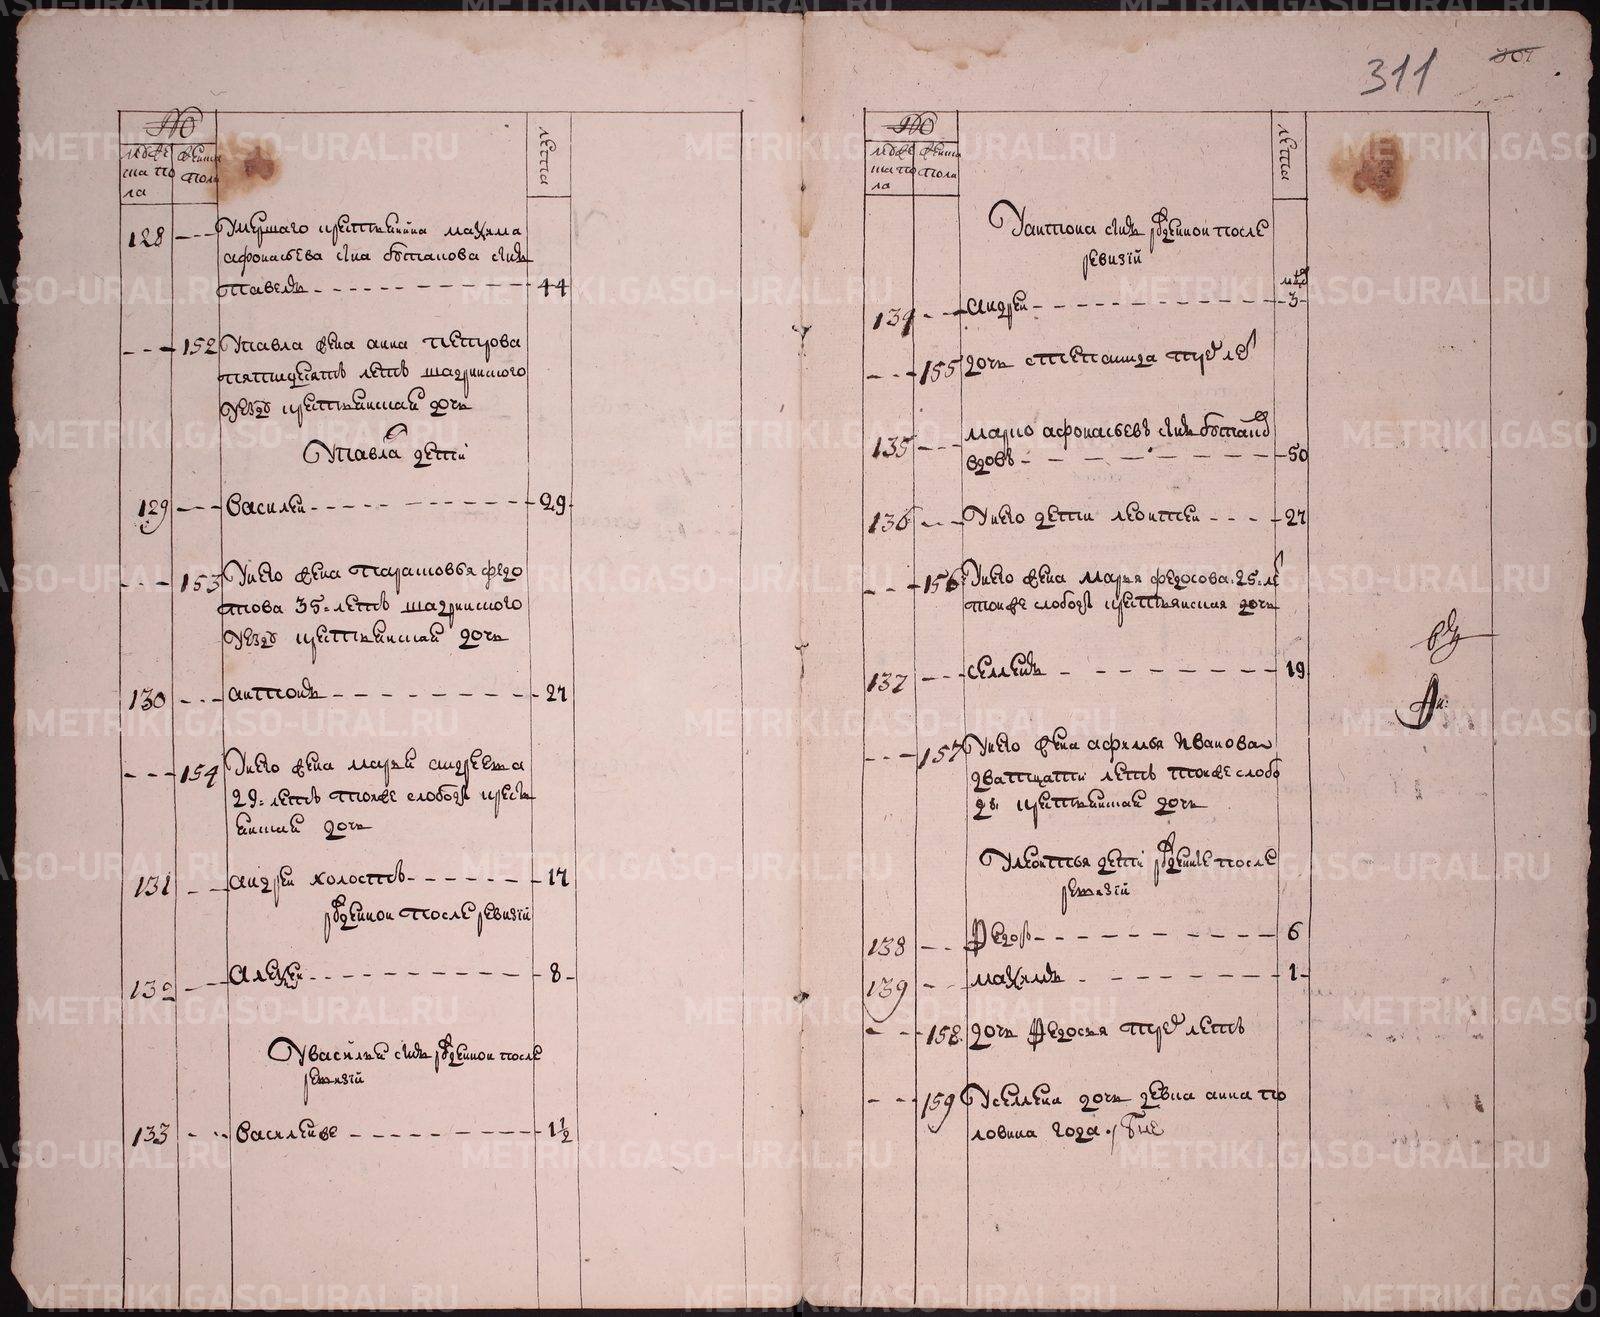 311
№
мужеска пола
женска пола
лета
128 Умершаго крестьянина максима
афонасьева сна бутакова снъ
павелъ 44
152 Упавла жена анна петрова
пятидесятъ летъ шадринского
уезду крестьянская дочь
Упавла дети
129 василеи 29
153 Унего жена парасковья федо
това 35 летъ шадринского
уезду крестьянская дочь
130 антонъ 27
154 Унего жена марья андреева
29 летъ тоиже слободы кресть
янская дочь
131 андреи холостъ 17
рожденнои после ревизiи
132 алексеи 8
Увасилья снъ рожденнои после
ревизiи
133 василеиже 1½
№
мужеска пола
женска пола
лета
Уантона снъ рожденнои после
ревизiи
134 андреи 3
155 дочь степанида трех ле
135 марко афонасьевъ снъ бутаков
вдовъ 50
136 Унего дети леонтеи 27
156 Унего жена марья федосова 25 ле
тоиже слободы крестьянская дочь
137 селленъ 19
157 Унего жена афимья иванова
дватцати летъ тоиже слобо
ды крестьянская дочь
Улеонтья дети рожденные после
ревизiи
138 Федоръ 6
139 максимъ 1
158 дочь Федосья трех летъ
159 Уселлена дочь девка анна по
ловина года